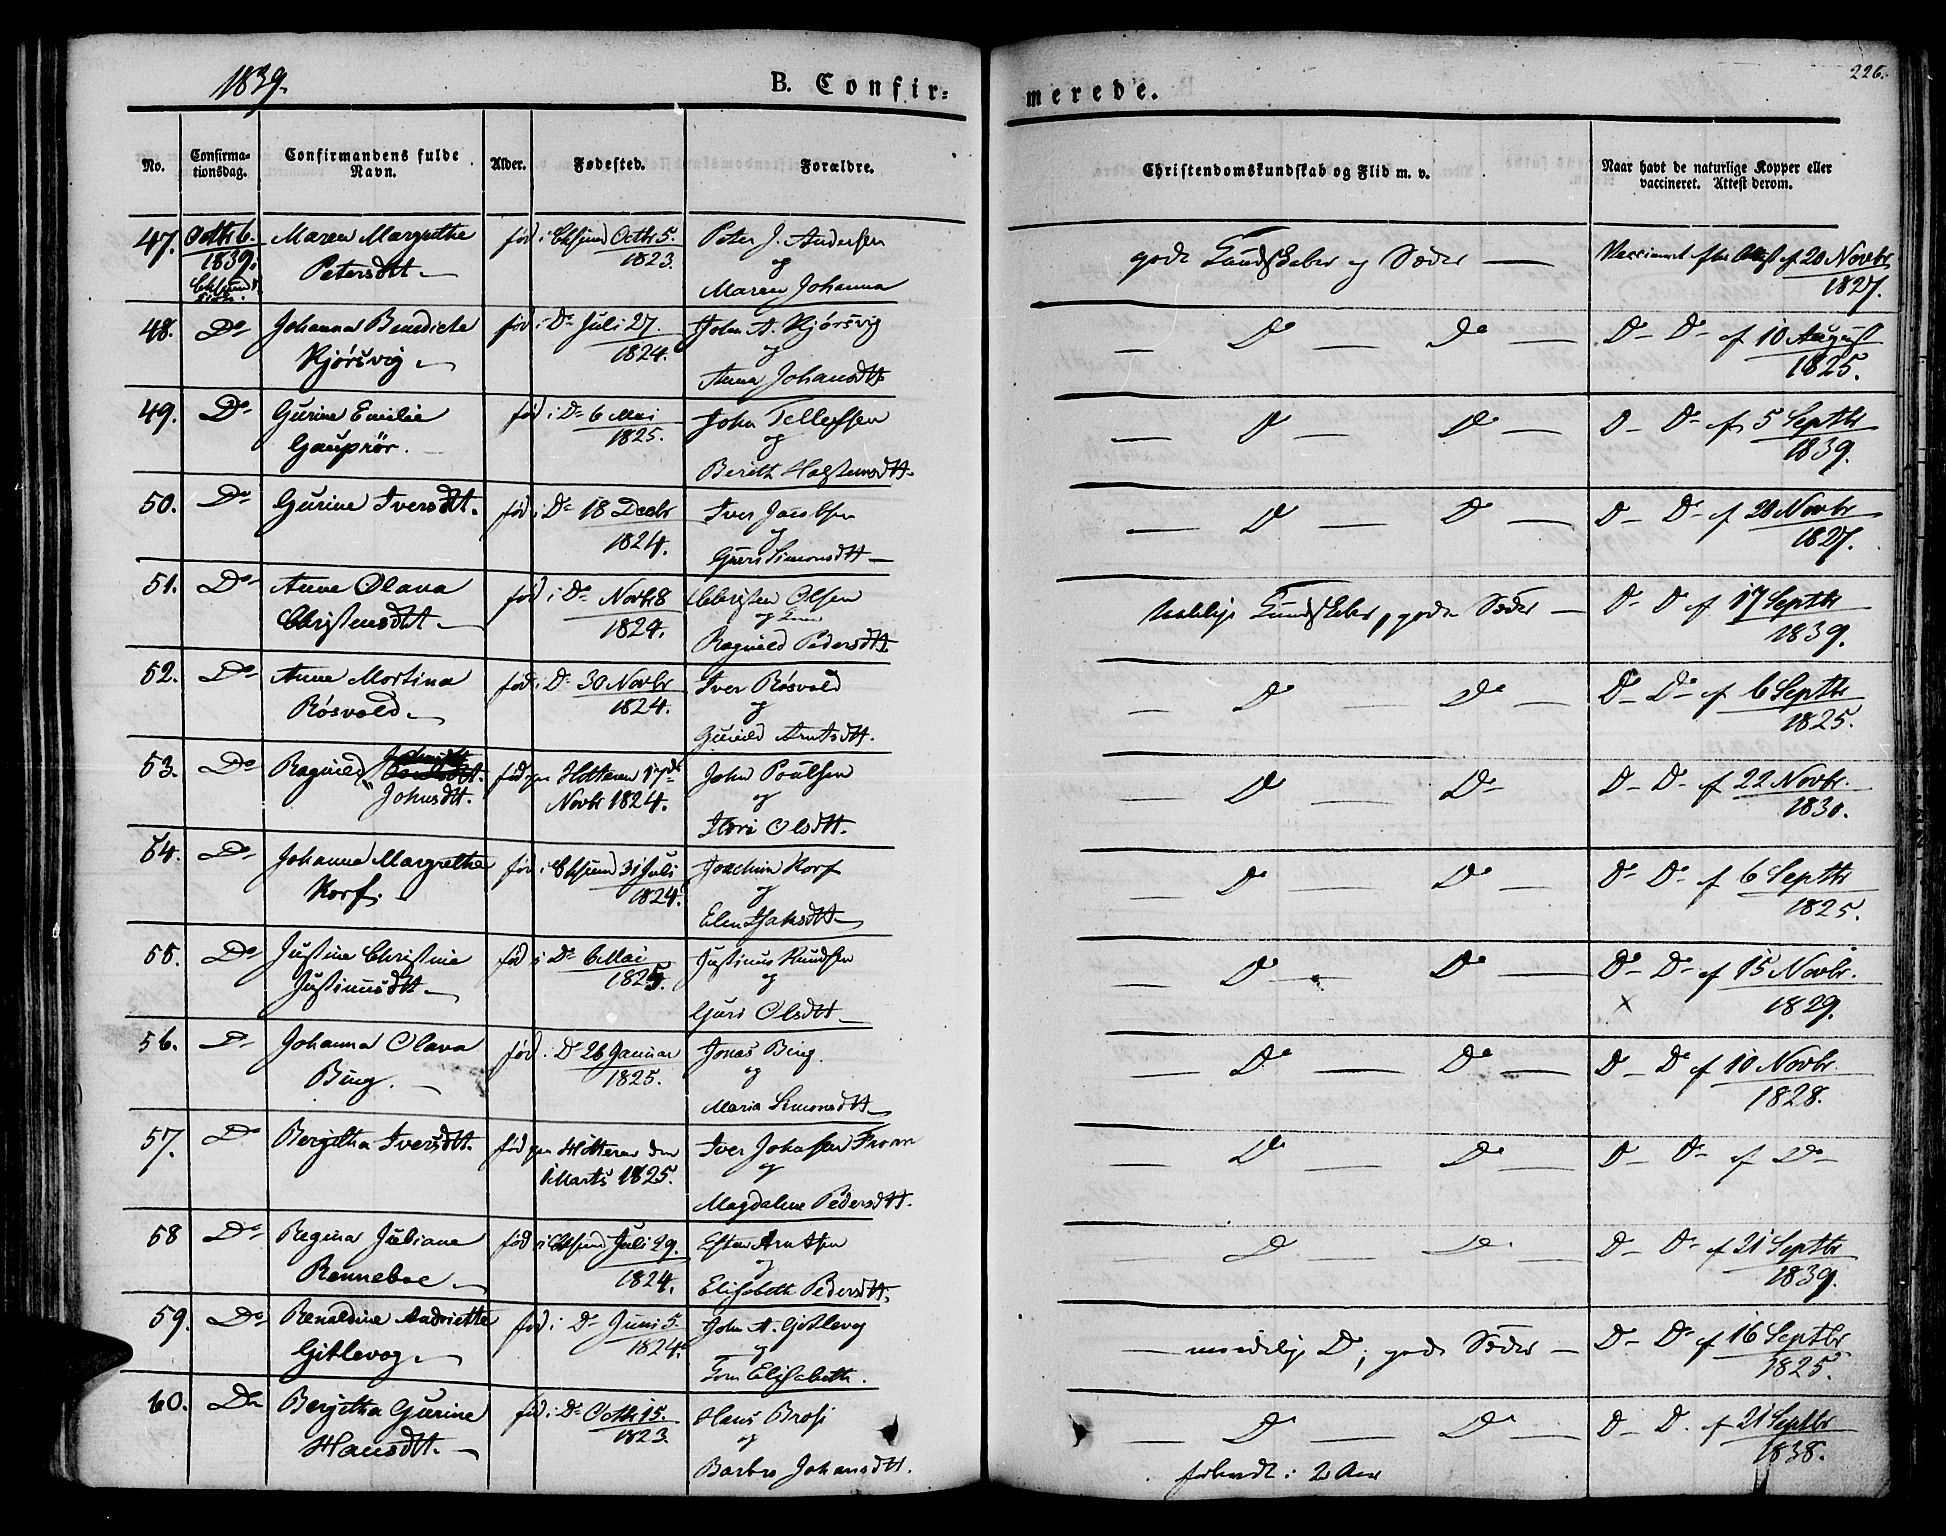 1839.
B. Confir=
merede.
226.
No.
Confirma-
tionsdag.
Confirmandens fulde
Navn.
Alder.
Fødested.
Forældre.
Christendomskundskab og Flid m. v.
Naar havt de naturlige Kopper eller
vaccineret. Attest derom.
47. Octbr 6. Maren Margrethe fød i Chsund Octbr 5. Peter J. Andersen
1839. Petersdtt. 1823. og
Chsund Maren Johanna
gode Kundskaber og Sæder — Vaccineret efter Attest af 20 Novbr
1827.
48. Do Johanna Benedicte fød i Do Juli 27. John A. Kjørsvig
Kjørsvig 1824. og
Anna Johansdtt.
— Do — Do — Do — Do af 10 August
1825.
49. Do Gurine Emilie fød i Do 6 Mai John Tellefsen
Gauprør. 1825. og
Berith Holstensdtt.
— Do — Do — Do — Do af 5 Septbr
1839.
50. Do Gurine Iversdtt. fød i Do 18 Decbr Iver Jacobsen
1824. og
Guri Simonsdtt
— Do — Do — Do — Do af 20 Novbr
1827.
51. Do Anne Olava fød i Do Novbr 8 Christen Olsen
Christensdtt. 1824. og
Ragnild Pedersdtt.
Kundskaber, gode Sæder — Do — Do af 17 Septbr
1839.
52. Do Anne Martina fød i Do 30 Novbr Iver Røsvold
Røsvold 1824. og
Gunild Arntsdtt.
— Do — Do — Do — Do af 6 Septbr
1825.
53. Do Ragnild fød paa Hitteren 17de John Poulsen
Johnsdtt. Novbr 1824. og
Olsdtt.
— Do — Do — Do — Do af 22 Novbr.
1830.
54. Do Johanna Margrethe fød i Chsund 31 Juli Joachim Korf
Korf. 1824. og
Elen Isaksdtt
— Do — Do — Do — Do af 6 Septbr
1825.
55. Do Justine Christine fød i Do 6 Mai Justinus Knudsen
Justinusdtt. 1825. og
Guri Olsdtt
— Do — Do — Do — Do af 15 Novbr.
x 1829.
56. Do Johanna Olava fød i Do 26 Januar Jonas Bing.
Bing. 1825. og
Maria Simonsdtt
— Do — Do — Do — Do af 10 Novbr.
1828.
57. Do Bergitha Iversdtt. fød paa Hitteren den Iver Johnsen From
Marts 1825. og
Magdalene Pedersdtt.
— Do — Do — Do — Do af Do
58 Do Regina Juliane fød i Chsund Juli 29. Arntsen
Renneboe 1824. og
Elisabeth Pedersdtt.
Do Do Do — Do af 21 Septbr
1839.
59. Do Renaldine Andriette fød i Do Juni 5. John A. Gitlevog
Gitlevog 1824. og
Elisabeth.
— maadelige Do; gode Sæder — Do — Do af 16 Septbr
1825.
60. Do Bergitha Gurine fød i Do Octbr 15. Hans Brosi
Hansdtt. 1823. og
Barbro Johansdtt.
— Do — Do — Do — Do af 21 Septbr
1838.
i 2 Aar